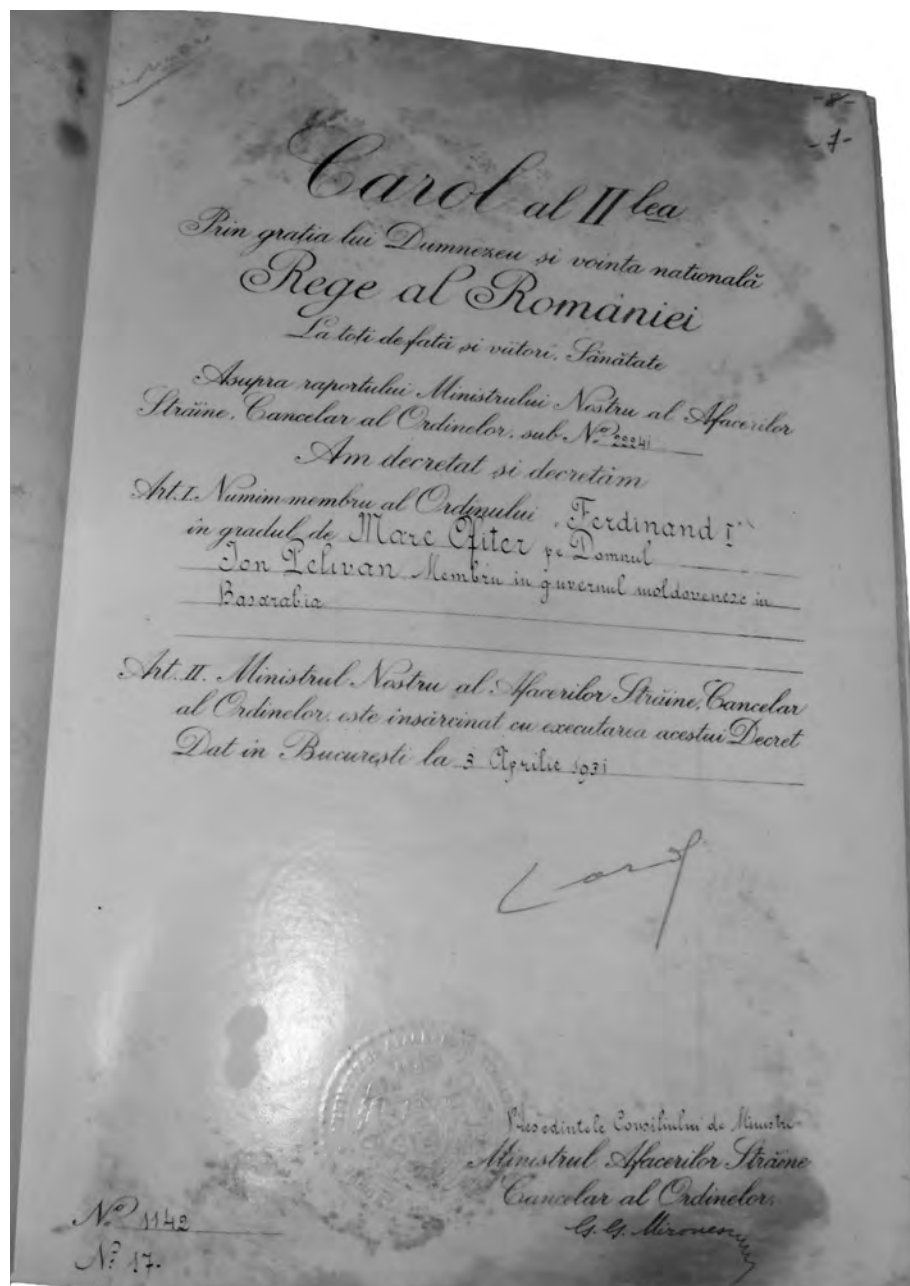 -8-
-7-
Carol al II lea
Prin grația lui Dumnezeu și voința natională
Rege al României
La toți de față și viitori, Sănătate
Asupra raportului Ministrului Nostru al Afacerilor
Străine, Cancelar al Ordinelor, sub No 2241
Am decretat și decretăm
Art. I. Numim membru al Ordinului „Ferdinand I”
în gradul de Mare Ofiter pe Domnul
Ion Pelivan Membru in guvernul moldovenesc in
Basarabia
Art. II. Ministrul Nostru al Afacerilor Străine, Cancelar
al Ordinelor, este însărcinat cu executarea acestui Decret
Dat în București la 3 Aprilie 1931
Carol
Președintele Consiliului de Miniștri
Ministrul Afacerilor Străine
Cancelar al Ordinelor,
G. G. Mironescu
No 1142
No 17.